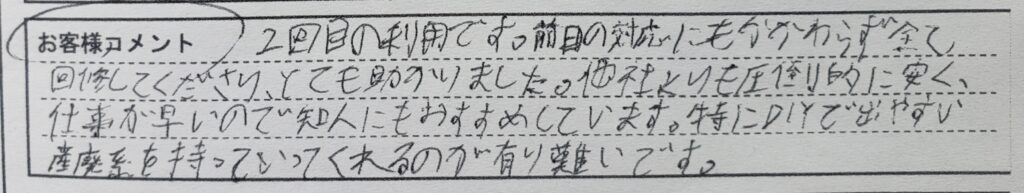 お客様コメント 2回目の利用です。前日の対応にもかかわらず全て
回修してくださり、とても助かりました。他社よりも圧倒的に安く、
仕事が早いので知人にもおすすめしています。特にDIYで出やすい
産廃系を持っていってくれるのが有り難いです。